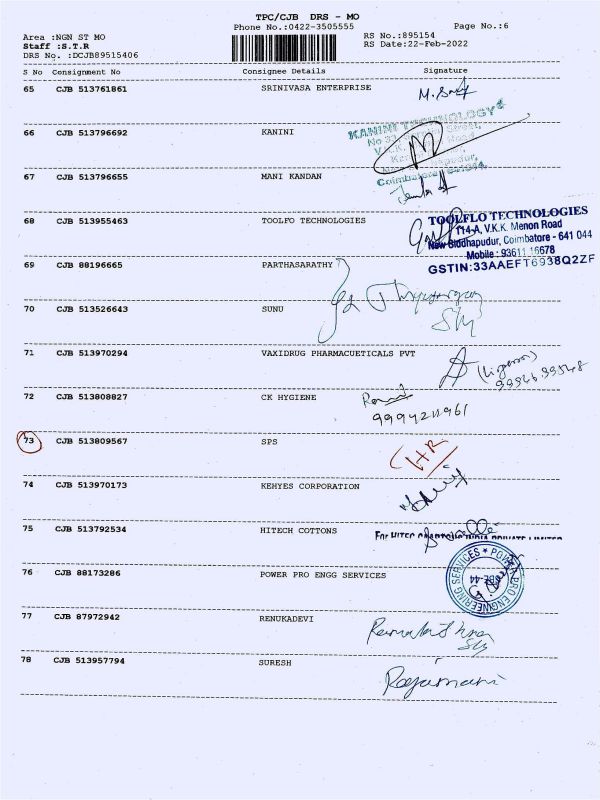 TPC/CJB DRS - MO
Phone No.:0422-3505555
Page No.:6
Area :NGN ST MO
Staff :S.T.R
DRS No. :DCJB89515406
RS No.:895154
RS Date:22-Feb-2022
S No Consignment No Consignee Details Signature
65 CJB 513761861 SRINIVASA ENTERPRISE
66 CJB 513796692 KANINI
KANINI TECHNOLOGY
67 CJB 513796655 MANI KANDAN
Coimbatore
68 CJB 513955463 TOOLFO TECHNOLOGIES
TOOLFLO TECHNOLOGIES
114-A, V.K.K. Menon Road
New Siddhapudur, Coimbatore - 641 044
Mobile : 93611 16678
GSTIN:33AAEFT6938Q2ZF
69 CJB 88196665 PARTHASARATHY
70 CJB 513526643 SUNU
71 CJB 513970294 VAXIDRUG PHARMACUETICALS PVT
72 CJB 513808827 CK HYGIENE
9994211961
73 CJB 513809567 SPS
HR
74 CJB 513970173 KEHYES CORPORATION
75 CJB 513792534 HITECH COTTONS
76 CJB 88173286 POWER PRO ENGG SERVICES
POWER PRO ENGINEERING SERVICES
77 CJB 87972942 RENUKADEVI
78 CJB 513957794 SURESH
Rajamani